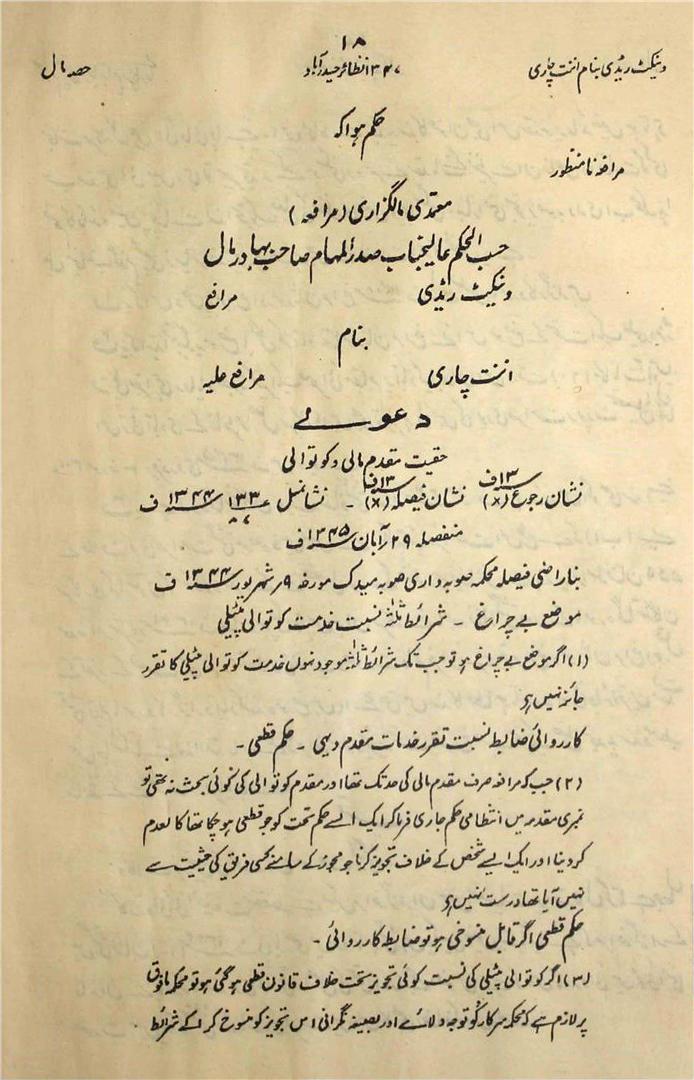 ۱۸
وینکٹ ریڈی بنام اننت چاری ۱۳۴۷ نظائر حیدرآباد حصہ مال
حکم ہوا کہ
مرافعہ نامنظور
معتمدی مالگزاری (مرافعہ)
حسب الحکم عالیجناب صدر المہام صاحب بہادر مال
وینکٹ ریڈی مرافع
بنام
اننت چاری مرافع علیہ
دعوے
حقیت مقدم مالی و کوتوالی
نشان رجوع (×) ۱۳ف نشان فیصلہ (×) ۱۳ف ۔ نشانمثل ۱۳۳ ۱۳۴۴ ف
منفصلہ ۲۹ آبان ۱۳۴۵ ف
بناراضی فیصلہ محکمہ صوبہ داری صوبہ میدک مورخہ ۹ شہریور ۱۳۴۴ ف
موضع بے چراغ ۔ شرائط ثلثہ نسبت خدمت کوتوالی پٹیلی
(۱) اگر موضع بے چراغ ہو تو جب تک شرائط ثلثہ موجود نہوں خدمت کوتوالی پٹیلی کا تقرر
جائز نہیں ہے
کارروائی ضابطہ نسبت تقرر خدمات مقدم دیہی ۔ حکم قطعی ۔
(۲) جب کہ مرافعہ صرف مقدم مالی کی حد تک تھا اور مقدم کوتوالی کی کوئی بحث نہ تھی تو
نمبری مقدمہ میں انتظامی حکم جاری فرما کر ایک ایسے حکم تحت کو جو قطعی ہو چکا تھا کالعدم
کر دینا اور ایک ایسے شخص کے خلاف تجویز کرنا جو مجوز کے سامنے کسی فریق کی حیثیت سے
نہیں آیا تھا درست نہیں ہے
حکم قطعی اگر قابل منسوخی ہو تو ضابطہ کارروائی ۔
(۳) اگر کوتوالی پٹیلی کی نسبت کوئی تجویز تحت خلاف قانون قطعی ہو گئی ہو تو محکمہ مافوق
پر لازم ہے کہ محکمہ سرکار کو توجہ دلائے اور بصیغہ نگرانی اس تجویز کو منسوخ کرا کے شرائط